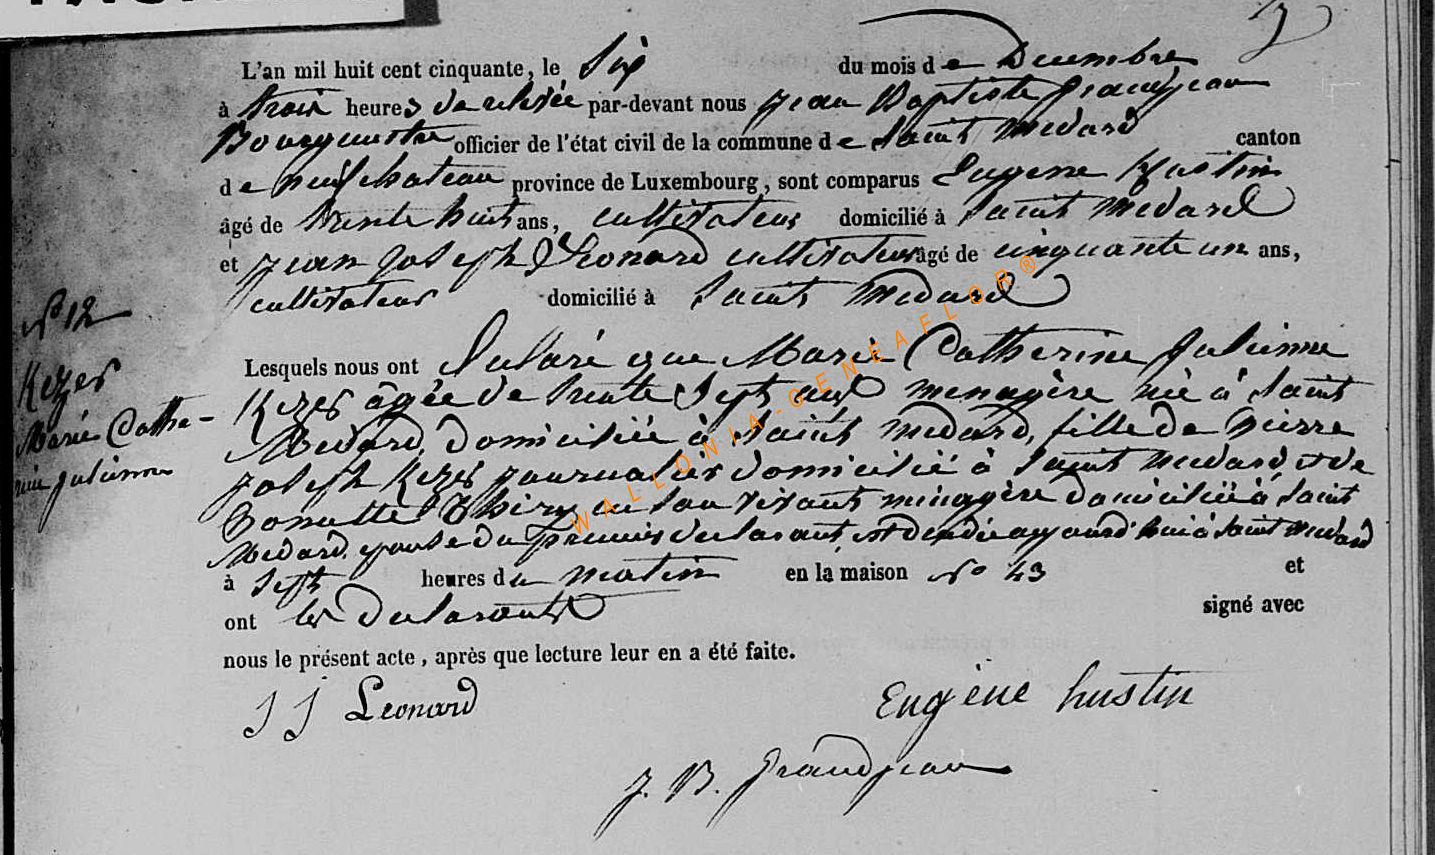 L'an mil huit cent cinquante, le Six du mois de Decembre
à trois heures de relevée par-devant nous Jean Baptiste Grandjean
Bourguestre officier de l'état civil de la commune de Saint Medard canton
de neufchateau province de Luxembourg, sont comparus Eugene Hustin
âgé de trente huit ans, cultivateur domicilié à Saint Medard
et Jean Joseph Leonard cultivateur âgé de cinquante un ans,
cultivateur domicilié à Saint Medard
n° 12
Kezer
Marie Cathe-
rine Julienne
Lesquels nous ont déclaré que Marie Catherine Julienne
Kezer âgée de trente Sept ans menagère née à Saint
Medard, domiciliée à Saint Medard, fille de Pierre
Joseph Kezer journalier domicilié à Saint Medard, et de
Thiry en son vivant ménagère domiciliée à Saint
Medard, epouse du premier declarant, est decedée aujourd'hui à Saint Medard
à Sept heures du matin en la maison N° 43 et
ont les declarants signé avec
nous le présent acte, après que lecture leur en a été faite.
J J Leonard
Eugène hustin
J. B. Grandjean
WALLONIA-GENEAFLOR®